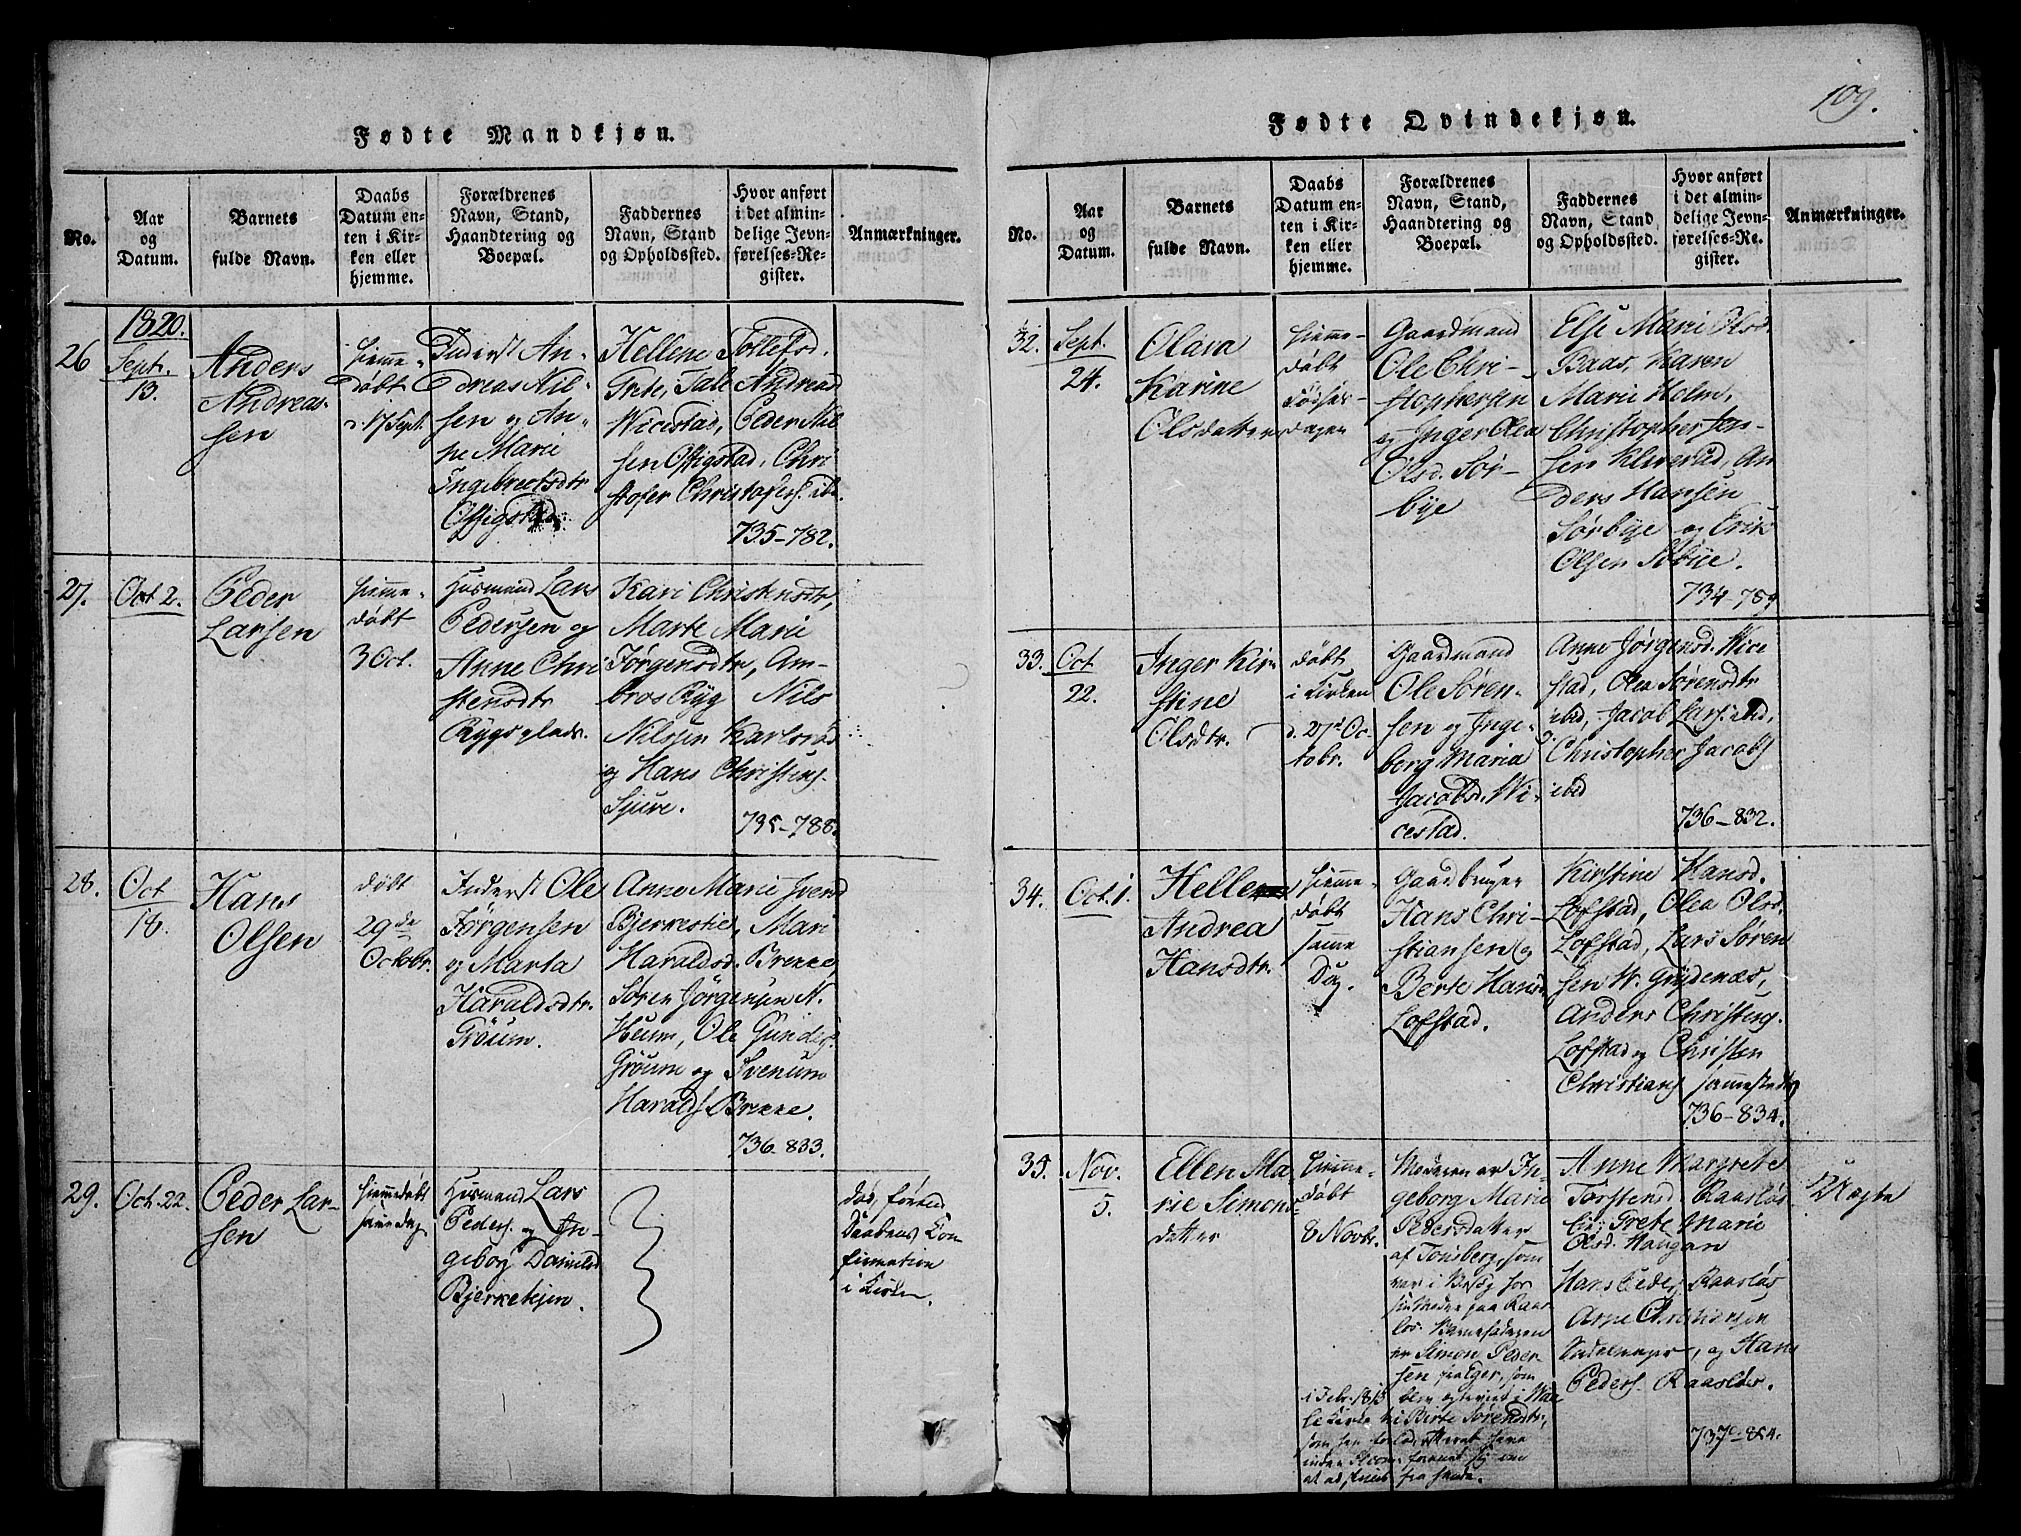 109.
Fødte Mandkjøn.
No.
Aar
og
Datum.
Barnets
fulde Navn.
Daabs
Datum en-
ten i Kir-
ken eller
hjemme.
Forældrenes
Navn, Stand,
Haandtering og
Boepæl.
Faddernes
Navn, Stand
og Opholdssted.
Hvor anført
i det almin-
delige Jevn-
førelses-Re-
gister.
Anmærkninger.
26
1820.
Sept.
13.
Anders
Andreas-
sen
hjemme-
døbt
17 Sept.
Inderst An-
dreas Nil-
sen og An-
ne Marie
Ingebretsdtr
Offigstad
Hellene Tollefsd.
Grete, Tale Andreasd
Wicestad, Peder Nil
sen Offigstad, Chri
stofer Christofers. ibd.
735-782.
27.
Oct 2.
Peder
Larsen
hjemme-
døbt
3 Oct.
Husmand Lars
Pedersen og
Anne Chri
stensdtr
Rygsplads.
Kari Christensdtr,
Marte Marie
Jørgensdtr, Am-
bros Ryg Nils
Nilssen Karlsrud
og Hans Christens.
Sjure.
735-788.
28.
Oct
18.
Hans
Olsen
døbt
29de
Octobr.
Inderst Ole
Jørgensen
og Marta
Haraldsdtr.
Grøum.
Anne Marie Svend
Bjerkestie, Mari
Haraldsd. Brekke,
Søren Jørgensen N.
Heum, Ole Gunders.
Grøum og Svenum
Haralds. Brekke.
736-833.
29.
Oct. 22.
Peder Lar-
sen
hjemmedøbt
samme dag
Husmand Lars
Peders. og In-
geborg Daniels
Bjerketejen.
død førend
Daabens Con
firmation
i Kirken.
Fødte Qvindekjøn.
No.
Aar
og
Datum.
Barnets
fulde Navn.
Daabs
Datum en-
ten i Kir-
ken eller
hjemme.
Forældrenes
Navn, Stand,
Haandtering og
Boepæl.
Faddernes
Navn, Stand
og Opholdssted.
Hvor anført
i det almin-
delige Jevn-
førelses-Re-
gister.
Anmærkninger.
32.
Sept.
24.
Olava
Karine
Olsdatter
hjemme-
døbt
dagen
Gaardmand
Ole Chri-
stophersen
og Inger Olea
Olsd. Sør-
bye
Else Marie Olsd.
Baas, Karen
Marie Holm,
Christopher Jen-
sen Kleverud, An
ders Hansen
Sørbye og Erik
Olsen Sørbye.
734-789
33.
Oct
22.
Inger Kir-
stine
Olsdtr.
døbt
i Kirken
d. 27d Oc-
tobr.
Gaardmand
Ole Søren-
sen og Inge-
berg Maria
Jacobsd. Wi-
cestad.
Anne Jørgensd. Wice
stad, Olea Sørensdtr
ibid, Jacob Lars. ibid,
Christopher Jacobs
ibid
736-832.
34.
Oct. 1.
Hellene
Andrea
Hansdtr.
hjemme-
døbt
samme
Dag.
Gaardbruger
Hans Chri-
stiansen og
Berte Hansd.
Lofstad.
Kirstine Hansd.
Lofstad, Olea Olsd.
Lofstad, Lars Søren
sen W. Grydenæs,
Anders Christens.
Lofstad og Christen
Christians sammesteds
736-834.
35.
Nov.
5.
Ellen Ma
rie Simons-
datter
hjemme-
døbt
8 Novbr.
Moderen er In-
geborg Marie
Pedersdatter
af Tønsberg, som
var i Besøg hos
sin Moder paa Raas-
løs. Barnefaderen
er Simon Peder-
sen fra Eger, som
i Febr. 1818 blev egteviet i Waa
le Kirke til Berte Sørensdtr,
Anne Margrete
Torstensd. Raasløs
Grete Marie
Olsd. Haugan
Hans Peders Raasløs
Arne Christiansen
og Hans
Peders. Raasløs.
737-854.
Uægte